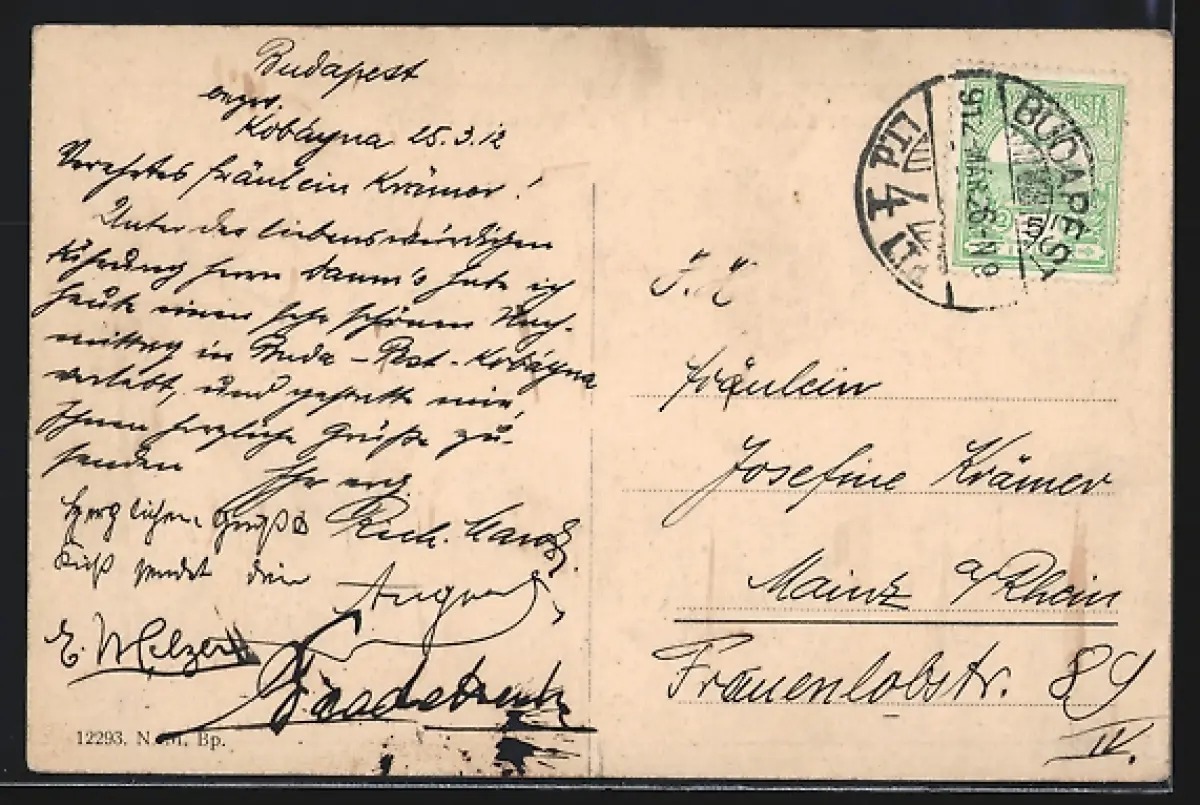 Budapest
Kobányna 25.3.12
Verehrtes Fräulein Krämer!
Unter der liebenswürdigen
Führung Herrn Daum's habe ich
heute einen sehr schönen Nach-
mittag in Buda-Pest-Kobányna
verlebt, und gestatte mir,
Ihnen herzliche Grüße zu
senden Ihr erg.
Herzlichen Gruß & Rich.
Kuß sendet dein August
E. Melzer
12293. N. M. Bp.
POSTA
BUDAPEST
912 MAR 26 - N 8
4
F. H.
Fräulein
Josefine Krämer
Mainz a/Rhein
Frauenlobstr. 89
IV.